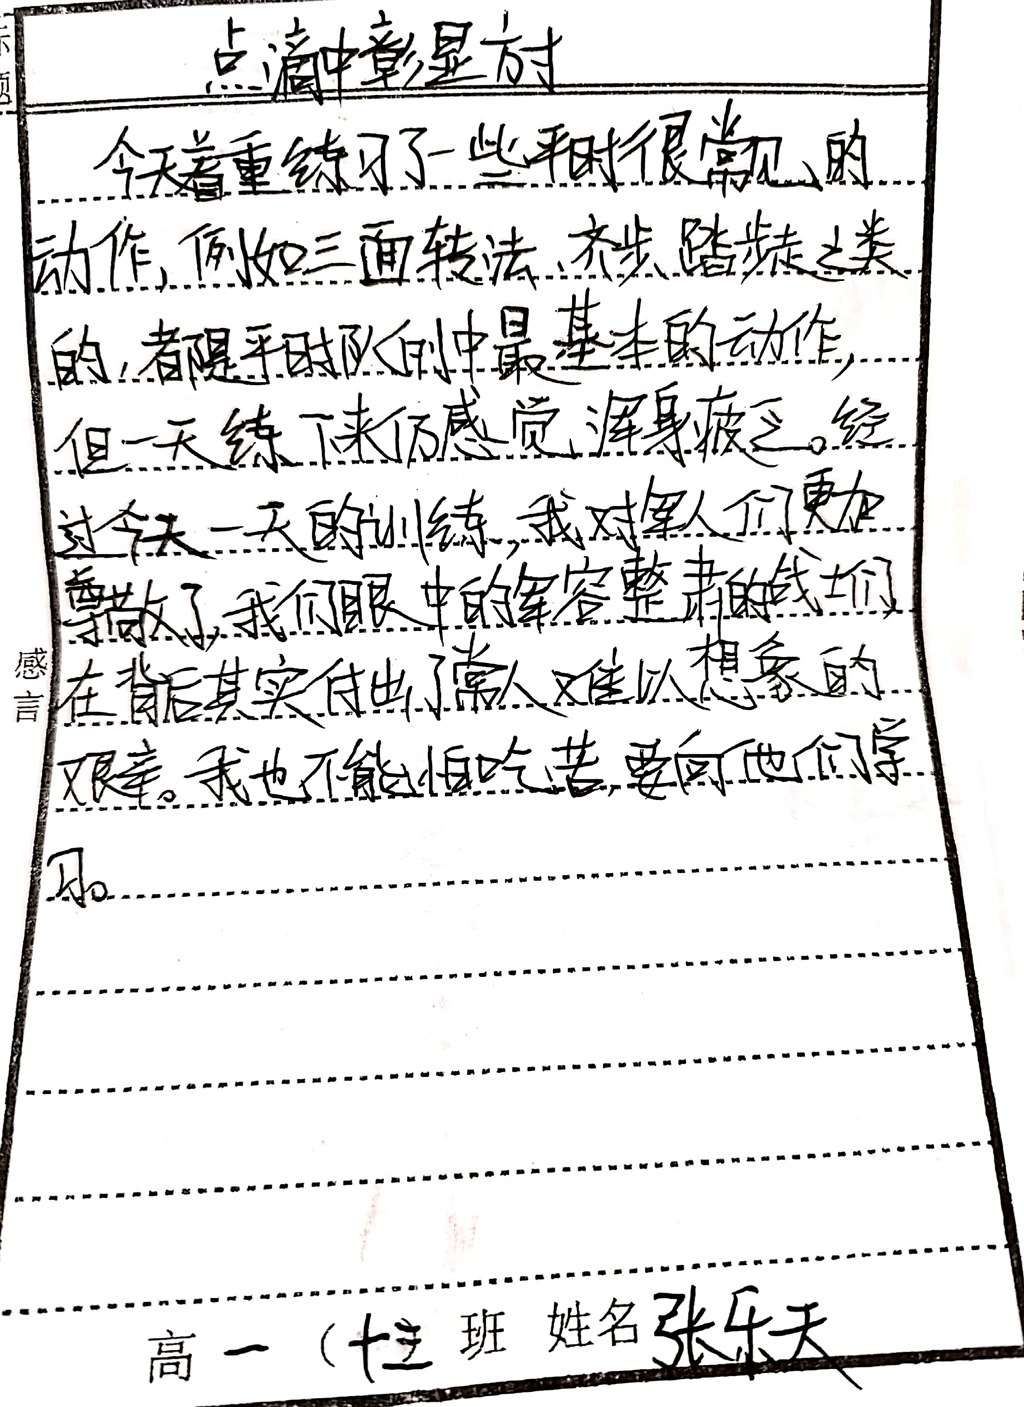 标题
点滴中彰显方寸
今天着重练习了一些平时很常见的
动作,例如三面转法、齐步、踏步走之类
的,都是平时队列中最基本的动作,
但一天练下来仍感觉浑身疲乏。经
过今天一天的训练,我对军人们更加
尊敬了,我们眼中的军容整肃的战士们,
在背后其实付出了常人难以想象的
艰辛。我也不能怕吃苦,要向他们学
习。
感言
高一(十 班 姓名 张乐天